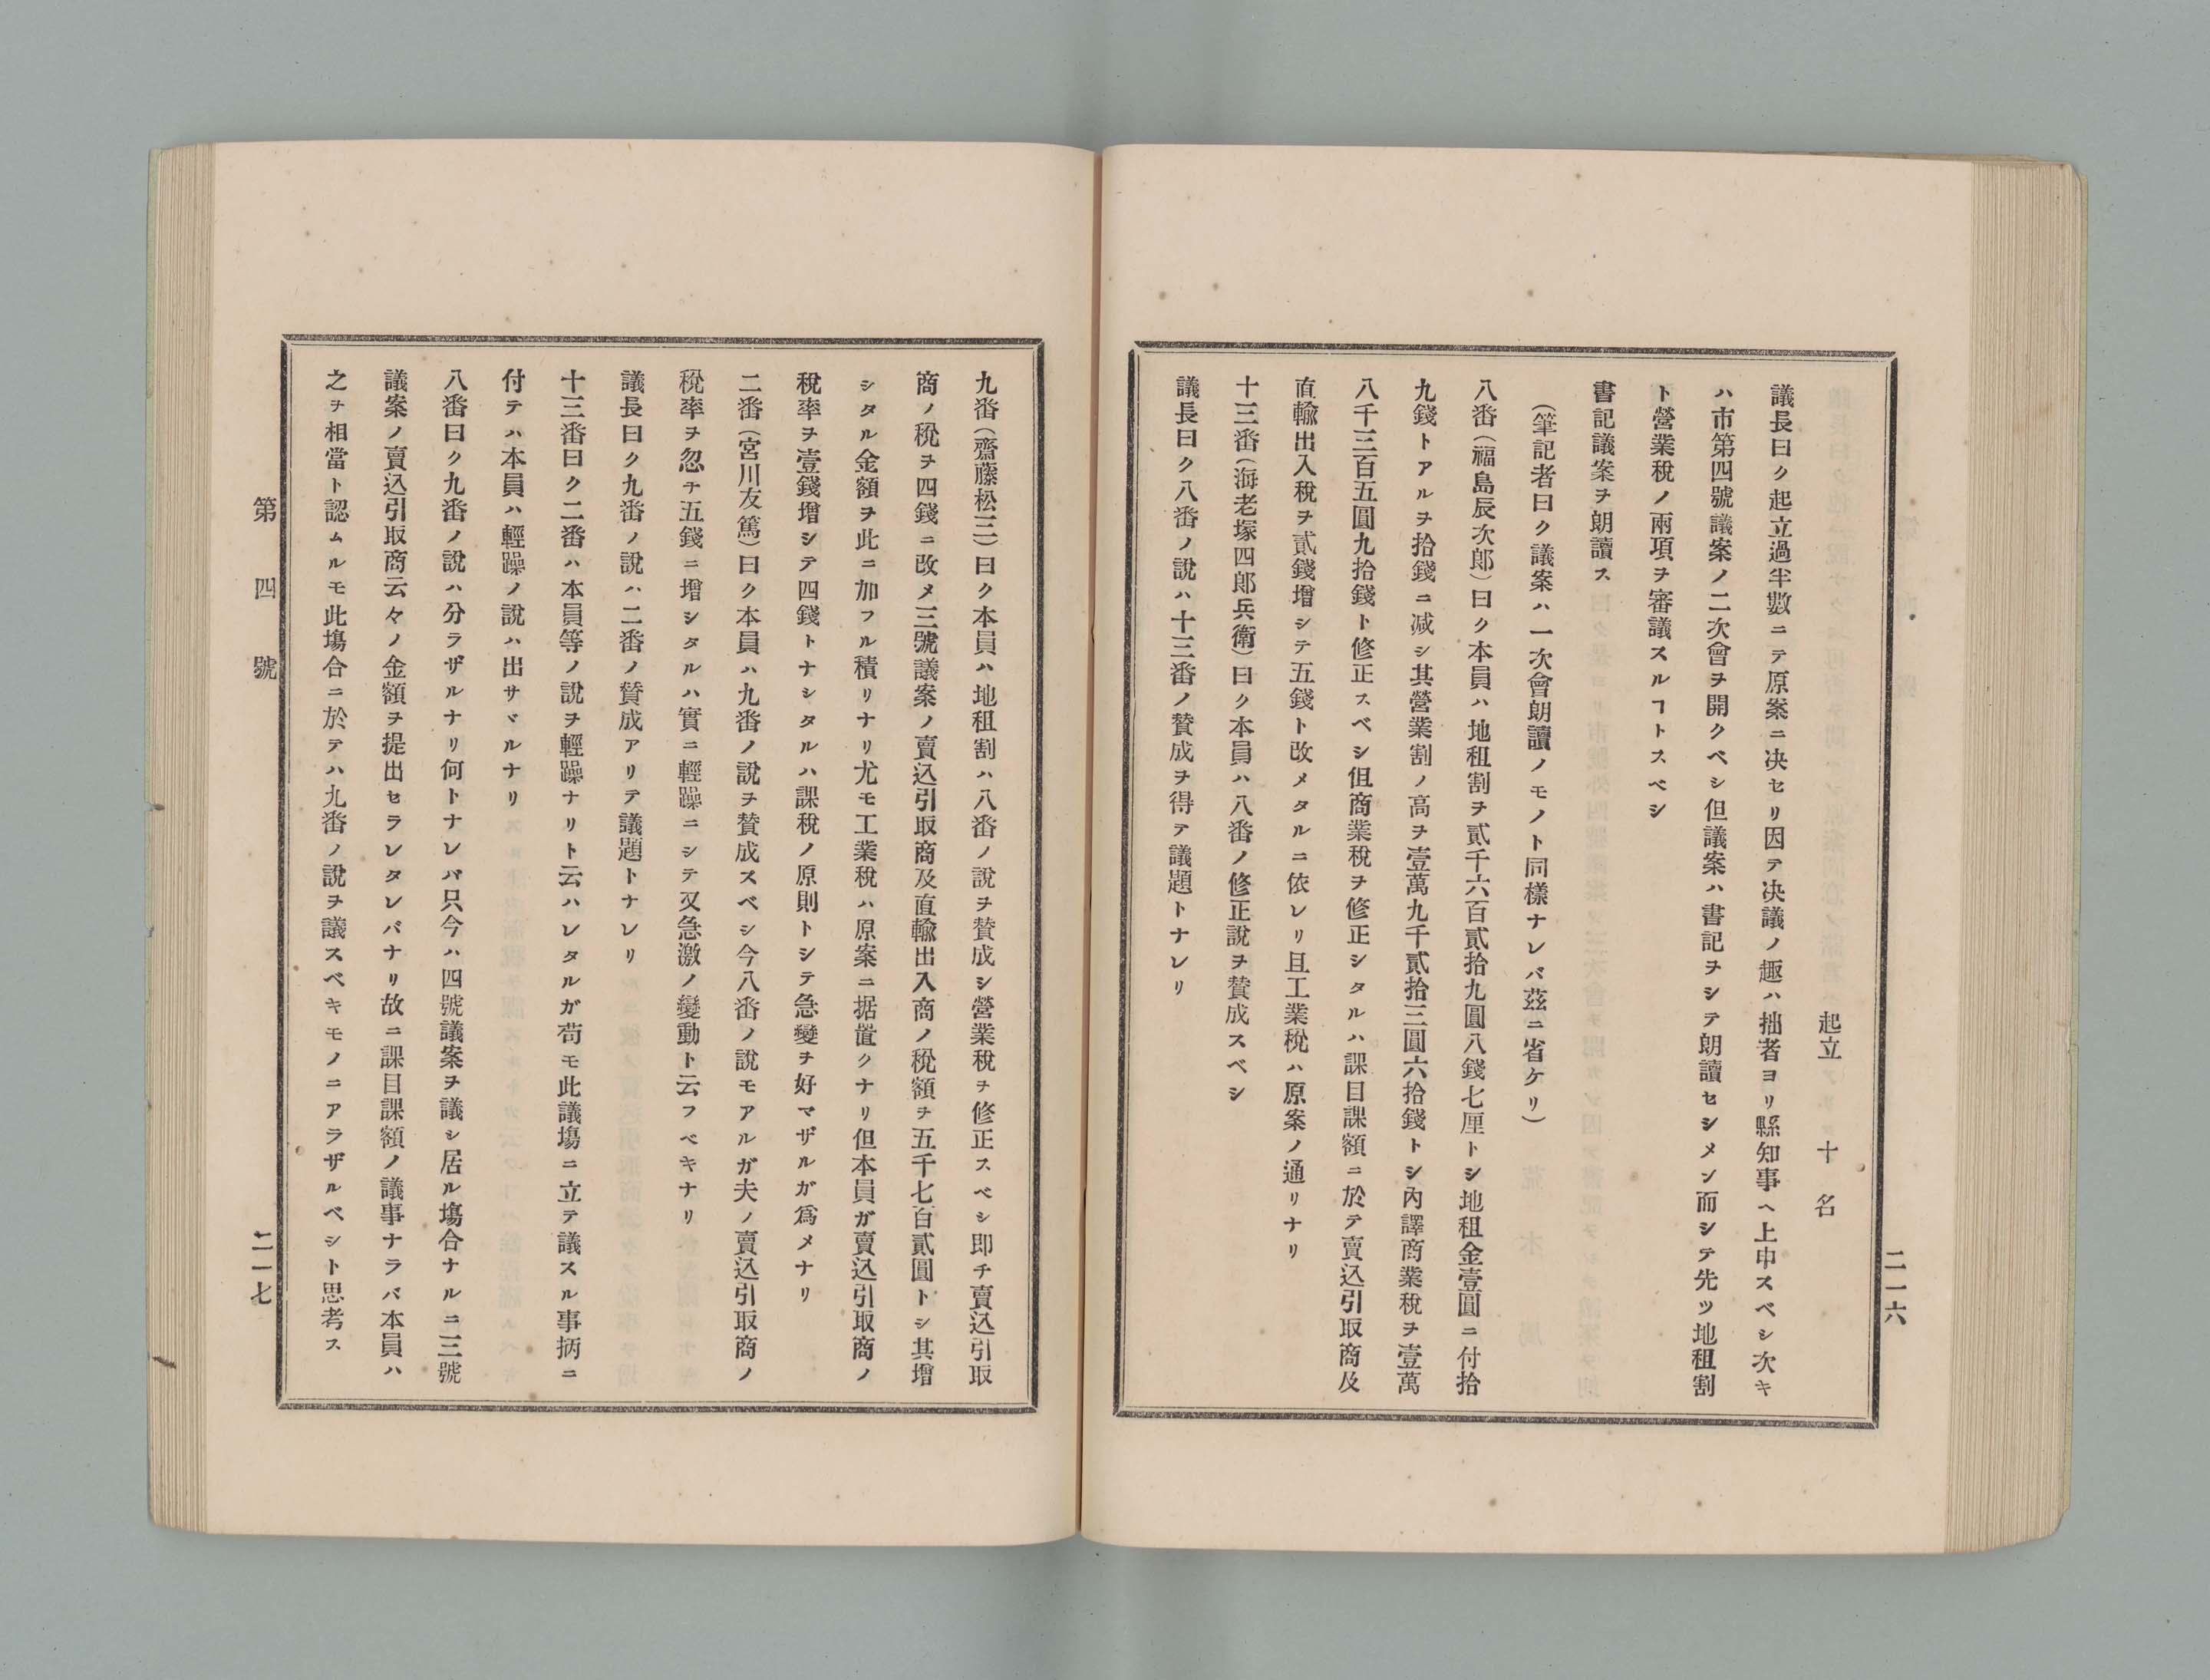 二一六
起立　十名
議長曰ク起立過半數ニテ原案ニ决セリ因テ决議ノ趣ハ拙者ヨリ縣知事ヘ上申スベシ次キ
ハ市第四號議案ノ二次會ヲ開クベシ但議案ハ書記ヲシテ朗讀セシメン而シテ先ツ地租割
ト營業稅ノ兩項ヲ審議スルヿトスベシ
書記議案ヲ朗讀ス
（筆記者曰ク議案ハ一次會朗讀ノモノト同樣ナレバ茲ニ省ケリ）
八番（福島辰次郎）曰ク本員ハ地租割ヲ貳千六百貳拾九圓八錢七厘トシ地租金壹圓ニ付拾
九錢トアルヲ拾錢ニ减シ其營業割ノ高ヲ壹萬九千貳拾三圓六拾錢トシ內譯商業稅ヲ壹萬
八千三百五圓九拾錢ト修正スベシ但商業稅ヲ修正シタルハ課目課額ニ於テ賣込引取商及
直輸出入稅ヲ貳錢增シテ五錢ト改メタルニ依レリ且工業稅ハ原案ノ通リナリ
十三番（海老塚四郎兵衛）曰ク本員ハ八番ノ修正說ヲ賛成スベシ
議長曰ク八番ノ說ハ十三番ノ賛成ヲ得テ議題トナレリ
九番（齋藤松三）曰ク本員ハ地租割ハ八番ノ說ヲ賛成シ營業稅ヲ修正スベシ即チ賣込引取
商ノ稅ヲ四錢ニ改メ三號議案ノ賣込引取商及直輸出入商ノ稅額ヲ五千七百貳圓トシ其增
シタル金額ヲ此ニ加フル積リナリ尤モ工業稅ハ原案ニ据置クナリ但本員ガ賣込引取商ノ
稅率ヲ壹錢增シテ四錢トナシタルハ課稅ノ原則トシテ急變ヲ好マザルガ爲メナリ
二番（宮川友篤）曰ク本員ハ九番ノ說ヲ賛成スベシ今八番ノ說モアルガ夫ノ賣込引取商ノ
稅率ヲ忽チ五錢ニ增シタルハ實ニ輕躁ニシテ又急激ノ變動ト云フベキナリ
議長曰ク九番ノ說ハ二番ノ賛成アリテ議題トナレリ
十三番曰ク二番ハ本員等ノ說ヲ輕躁ナリト云ハレタルガ苟モ此議塲ニ立テ議スル事柄ニ
付テハ本員ハ輕躁ノ說ハ出サヾルナリ
八番曰ク九番ノ說ハ分ラザルナリ何トナレバ只今ハ四號議案ヲ議シ居ル塲合ナルニ三號
議案ノ賣込引取商云々ノ金額ヲ提出セラレタレバナリ故ニ課目課額ノ議事ナラバ本員ハ
之ヲ相當ト認ムルモ此塲合ニ於テハ九番ノ說ヲ議スベキモノニアラザルベシト思考ス
第四號
二一七